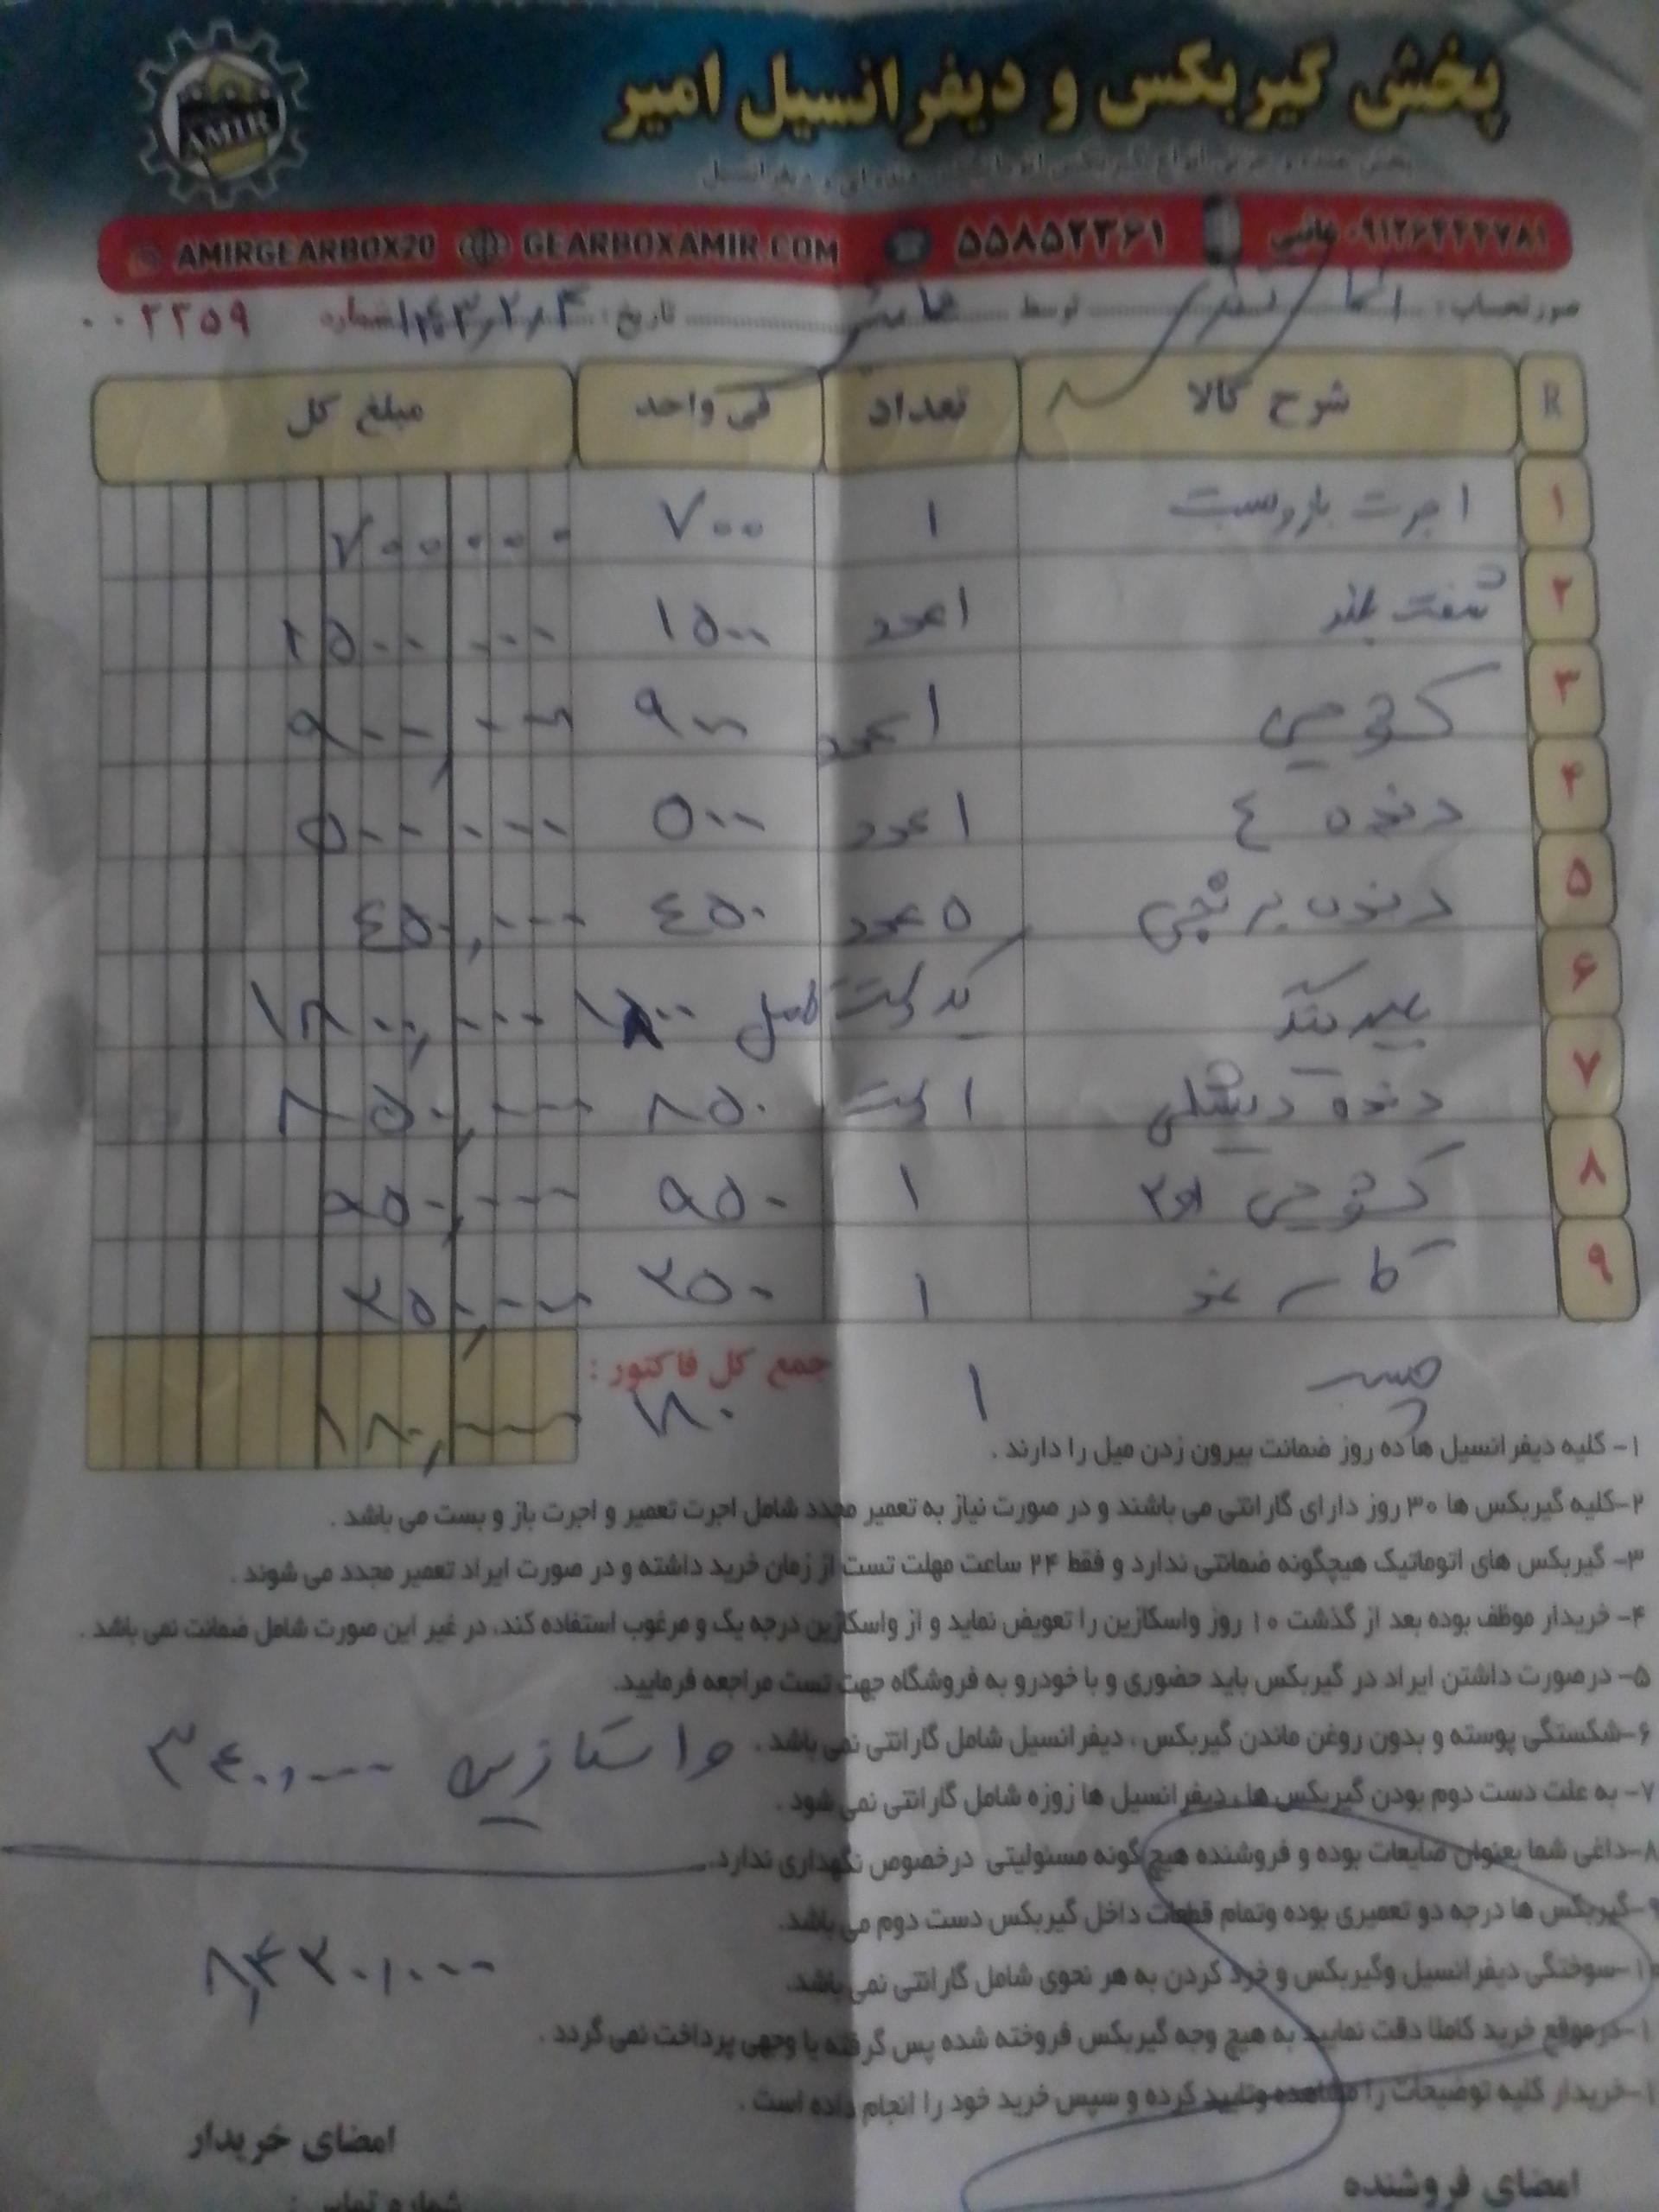 پخش گیربکس و دیفرانسیل امیر
AMIR
۵۵۸۵۲۳۶۱ GEARBOXAMIR.COM AMIRGEARBOX20
صورتحساب : آقا توسط تاریخ : ۱۴۰۳/۲/۴ شماره ۰۰۲۲۵۹
R شرح کالا تعداد فی واحد مبلغ کل
۱ اجرت بازوبست ۱ ۷۰۰ ۷۰۰۰۰۰
۲ شفت بلند ۱ عدد ۱۵۰۰ ۱۵۰۰۰۰۰
۳ کشویی ۱ عدد ۹۰۰ ۹۰۰,۰۰۰
۴ دنده ٤ ۱ عدد ۵۰۰ ۵۰۰۰۰۰
۵ دنده برنجی ۵ عدد ٤۵۰ ٤۵۰,۰۰۰
۶ بلبرینگ یکدست کامل ۱۸۰۰ ۱۸۰۰,۰۰۰
۷ دنده دیشلی ۱ ۸۵۰ ۸۵۰,۰۰۰
۸ کشویی ۱و۲ ۱ ۹۵۰ ۹۵۰,۰۰۰
۹ کاسه نمد ۱ ۲۵۰ ۲۵۰,۰۰۰
چسب ۱ ۱۸۰ ۱۸۰,۰۰۰
جمع کل فاکتور :
۱- کلیه دیفرانسیل ها ده روز ضمانت بیرون زدن میل را دارند .
۲-کلیه گیربکس ها ۳۰ روز دارای گارانتی می باشند و در صورت نیاز به تعمیر مجدد شامل اجرت تعمیر و اجرت باز و بست می باشد .
۳- گیربکس های اتوماتیک هیچگونه ضمانتی ندارد و فقط ۲۴ ساعت مهلت تست از زمان خرید داشته و در صورت ایراد تعمیر مجدد می شوند .
۴- خریدار موظف بوده بعد از گذشت ۱۰ روز واسکازین را تعویض نماید و از واسکازین درجه یک و مرغوب استفاده کند، در غیر این صورت شامل ضمانت نمی باشد .
۵- درصورت داشتن ایراد در گیربکس باید حضوری و با خودرو به فروشگاه جهت تست مراجعه فرمایید.
۶-شکستگی پوسته و بدون روغن ماندن گیربکس ، دیفرانسیل شامل گارانتی نمی باشد .
واسکازین ۳٤۰,۰۰۰
۷- به علت دست دوم بودن گیربکس ها ، دیفرانسیل ها زوزه شامل گارانتی نمی شود .
۸-داغی شما بعنوان ضایعات بوده و فروشنده هیچ گونه مسئولیتی درخصوص نگهداری ندارد.
۹-گیربکس ها درجه دو تعمیری بوده وتمام قطعات داخل گیربکس دست دوم می باشد.
۸,۴۲۰,۰۰۰
۱۰-سوختگی دیفرانسیل وگیربکس و خرد کردن به هر نحوی شامل گارانتی نمی باشد.
-درموقع خرید کاملا دقت نمایید به هیچ وجه گیربکس فروخته شده پس گرفته یا وجهی پرداخت نمی گردد .
-خریدار کلیه توضیحات را مشاهده وتایید کرده و سپس خرید خود را انجام داده است .
امضای فروشنده امضای خریدار
شماره تماس :